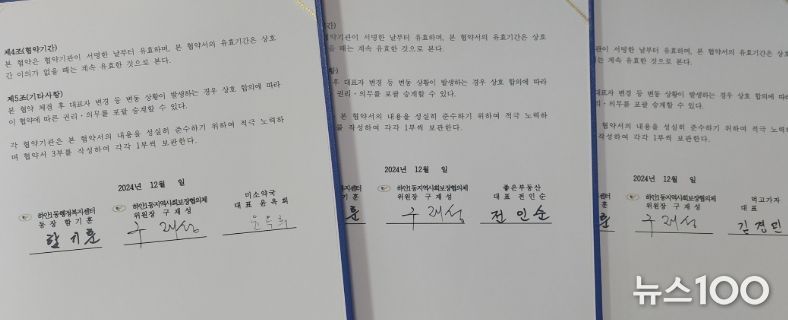 제4조(협약기간)
본 협약은 협약기관이 서명한 날부터 유효하며, 본 협약서의 유효기간은 상호
간 이의가 없을 때는 계속 유효한 것으로 본다.
제5조(기타사항)
본 협약 체결 후 대표자 변경 등 변동 상황이 발생하는 경우 상호 합의에 따라
이 협약에 따른 권리·의무를 포괄 승계할 수 있다.
각 협약기관은 본 협약서의 내용을 성실히 준수하기 위하여 적극 노력하
며 협약서 3부를 작성하여 각각 1부씩 보관한다.
2024년 12월 일
하안1동행정복지센터
동장 함기훈
함기훈
하안1동지역사회보장협의체
위원장 구재성
구재성
미소약국
대표 윤옥희
윤옥희
간)
협약기관이 서명한 날부터 유효하며, 본 협약서의 유효기간은 상호
없을 때는 계속 유효한 것으로 본다.
항)
후 대표자 변경 등 변동 상황이 발생하는 경우 상호 합의에 따라
권리·의무를 포괄 승계할 수 있다.
본 협약서의 내용을 성실히 준수하기 위하여 적극 노력하
를 작성하여 각각 1부씩 보관한다.
2024년 12월 일
복지센터
훈
훈
하안1동지역사회보장협의체
위원장 구재성
구재성
좋은부동산
대표 전인순
전인순
관이 서명한 날부터 유효하며, 본 협약서의 유효기간은 상호
때는 계속 유효한 것으로 본다.
표자 변경 등 변동 상황이 발생하는 경우 상호 합의에 따라
의무를 포괄 승계할 수 있다.
협약서의 내용을 성실히 준수하기 위하여 적극 노력하
작성하여 각각 1부씩 보관한다.
2024년 12월 일
센터
훈
하안1동지역사회보장협의체
위원장 구재성
구재성
먹고가자
대표
김경민
뉴스100